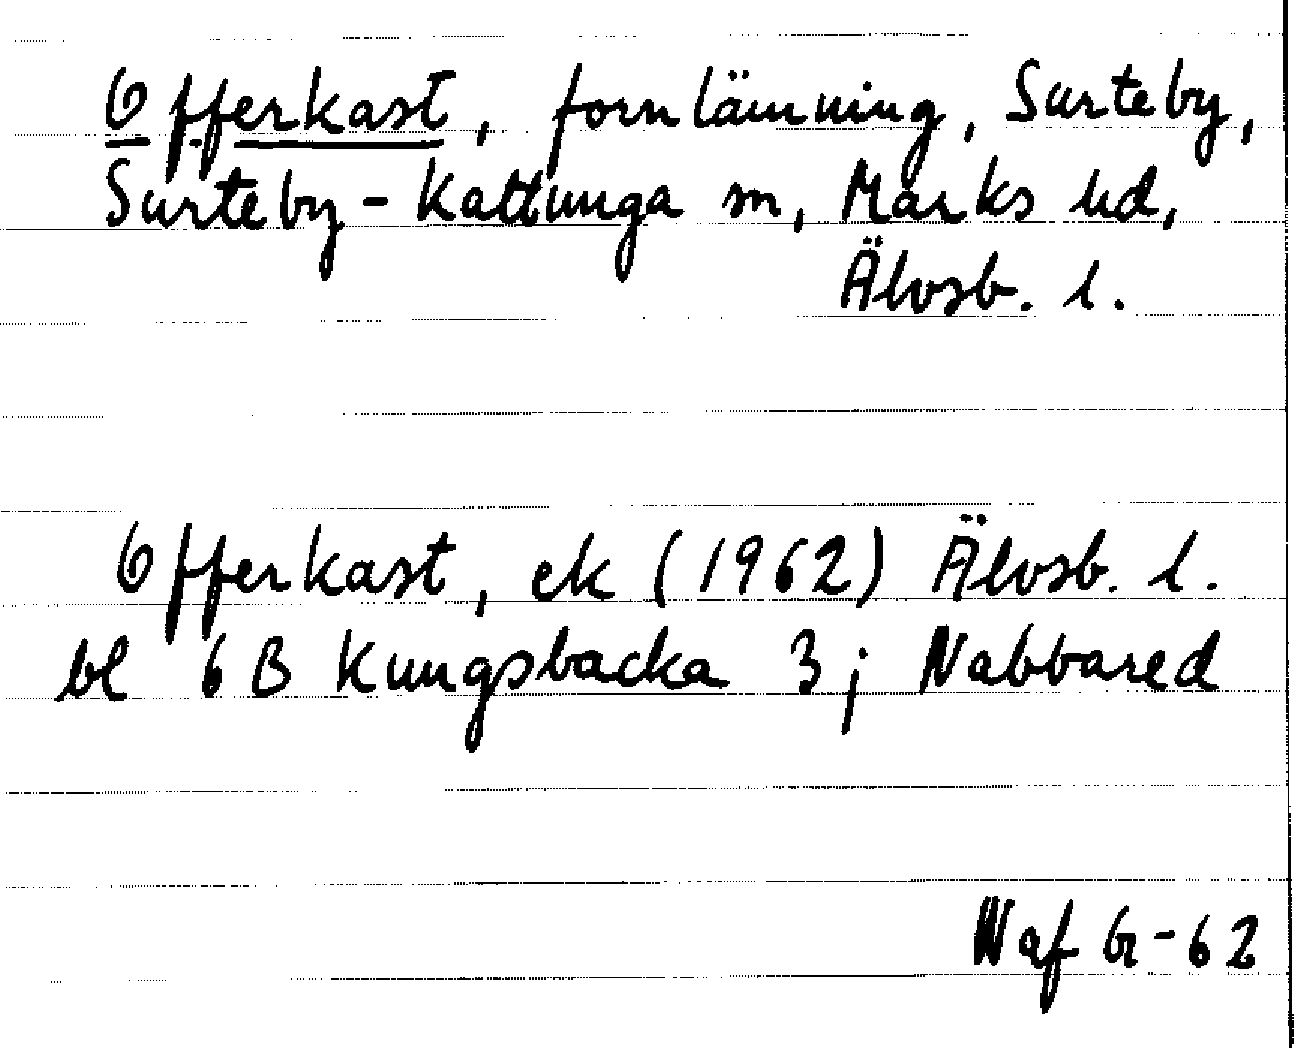 Offerkast, fornlämning, Surteby,
Surteby-Kattunga sn, Marks hd,
Älvsb. l.
Offerkast, ek (1962) Älvsb. l.
bl 6B Kungsbacka 3j Nabbared
Naf Gr-62